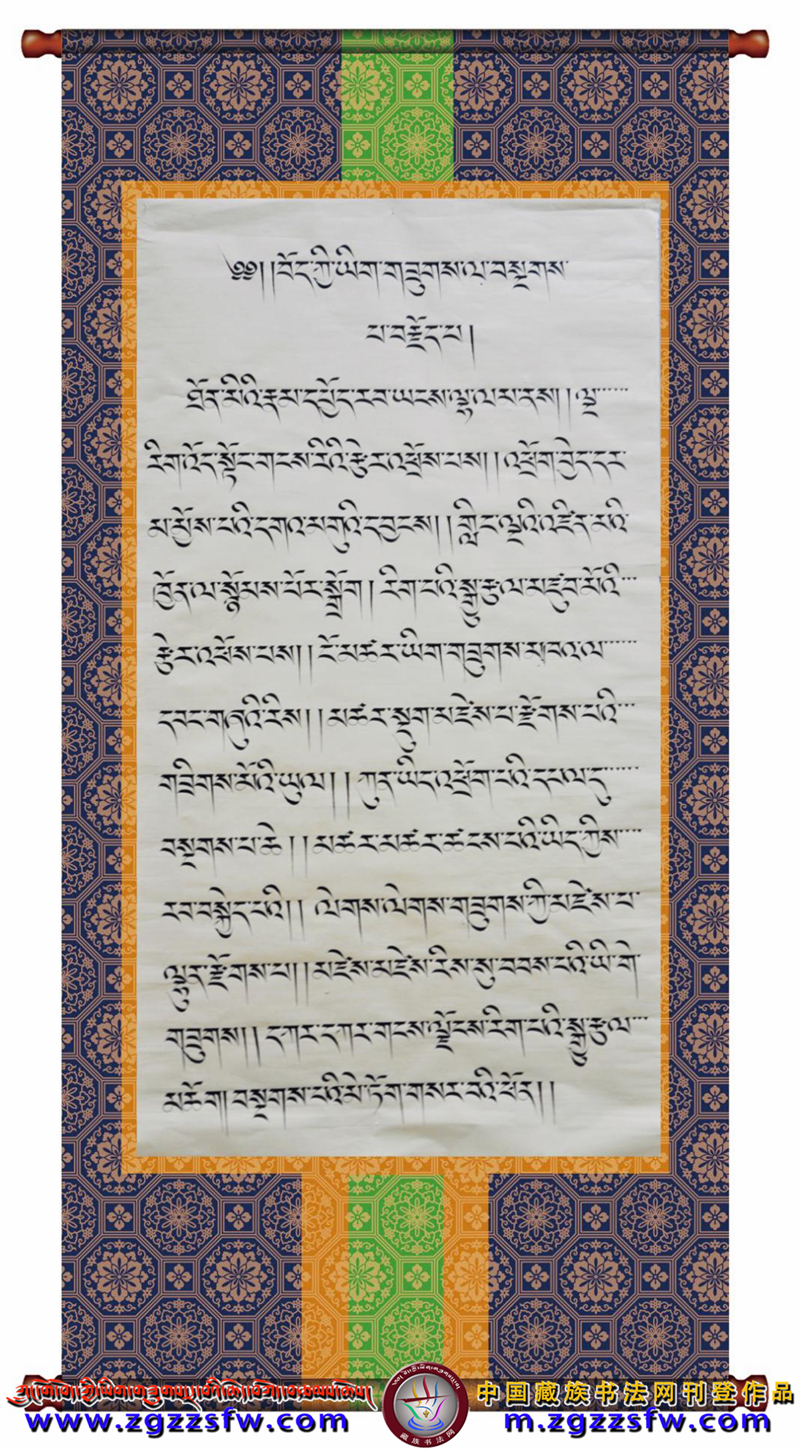 ༄༅། །བོད་ཀྱི་ཡིག་གཟུགས་ལ་བསྔགས་
པ་བརྗོད་པ།
ཐོན་མིའི་རྣམ་དཔྱོད་རབ་ཡངས་ལྷ་ལམ་ནས། །ལྔ་
རིག་འོད་སྟོང་གངས་རིའི་རྩེར་འཕྲོས་པས། །འཕྲོག་བྱེད་དར་
མ་སྨྱོས་པའི་དགའ་མགུའི་དབྱངས། །གླིང་ལྔའི་འཛིན་མའི་
ཁྱོན་ལ་སྙོམས་པོར་སྒྲོག །རིག་པའི་སྒྱུ་རྩལ་མཛུབ་མོའི་
རྩེར་འཕོས་པས། །ངོ་མཚར་ཡིག་གཟུགས་མཁའ་ལ་
དབང་གཞུའི་རིས། །མཚར་སྡུག་མཛེས་པ་རྫོགས་པའི་
གཟིགས་མོའི་ཡུལ། །ཀུན་ཡིད་འཕྲོག་པའི་དཔལ་དུ་
བསྔགས་པ་ཆེ། །མཚར་མཚར་ཚངས་པའི་ཡིད་ཀྱིས་
རབ་བསྐྱེད་པའི། །ལེགས་ལེགས་གཟུགས་ཀྱི་མཛེས་པ་
ལྷུར་རྫོགས་པ། །མཛེས་མཛེས་རིས་སུ་བབས་པའི་ཡི་གེ་
གཟུགས། །དཀར་དཀར་གངས་ལྗོངས་རིག་པའི་སྒྱུ་རྩལ་
མཆོག །བསྔགས་པའི་མེ་ཏོག་གསར་བའི་ཕོན། །
中国藏族书法网刊登作品
www.zgzzsfw.com
m.zgzzsfw.com
藏族书法网